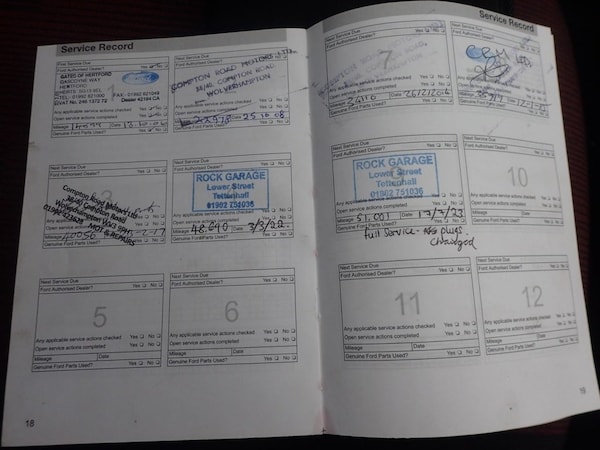 Service Record
Next Service Due
Ford Authorised Dealer? Yes No
GATES OF HERTFORD
GASCOYNE WAY
HERTFORD
TEL: 01992 FAX: 01992
VAT No. 246 1372 72 Dealer 42194 CA
Any applicable service actions checked Yes No
Open service actions completed Yes No
Mileage Date
Genuine Ford Parts Used? Yes No
COMPTON ROAD MOTORS
COMPTON ROAD
WOLVERHAMPTON
Open service actions completed Yes No
Mileage Date 25.10.08
Genuine Ford Parts Used? Yes No
Next Service Due
Ford Authorised Dealer? Yes No
Compton Road
Compton Road
Wolverhampton WV3
MOT & REPAIRS
Genuine Ford Parts Used? Yes No
Next Service Due
Ford Authorised Dealer? Yes No
ROCK GARAGE
Lower Street
Tettenhall
01902 751036
Any applicable service actions checked Yes No
Open service actions completed Yes No
Mileage 48.690 Date 3/3/22
Genuine Ford Parts Used? Yes No
Next Service Due
Ford Authorised Dealer? Yes No
5
Any applicable service actions checked Yes No
Open service actions completed Yes No
Mileage Date
Genuine Ford Parts Used? Yes No
Next Service Due
Ford Authorised Dealer? Yes No
6
Any applicable service actions checked Yes No
Open service actions completed Yes No
Mileage Date
Genuine Ford Parts Used? Yes No
18
Service Record
Next Service Due
Ford Authorised Dealer? Yes No
7
Any applicable service actions checked Yes No
Open service actions completed Yes No
Mileage Date 26/12/2016
Genuine Ford Parts Used? Yes No
Next Service Due
Ford Authorised Dealer?
Next Service Due
Ford Authorised Dealer? Yes No
ROCK GARAGE
Lower Street
Tettenhall
01902 751036
9
Any applicable service actions checked Yes No
Open service actions completed Yes No
Mileage 51.001 Date
Genuine Ford Parts Used? Yes No
full service - plugs
changed
Next Service Due
Ford Authorised Dealer? Yes No
10
Any applicable service actions checked Yes No
Open service actions completed Yes No
Mileage Date
Genuine Ford Parts Used? Yes No
Next Service Due
Ford Authorised Dealer? Yes No
11
Any applicable service actions checked Yes No
Open service actions completed Yes No
Mileage Date
Genuine Ford Parts Used? Yes No
Next Service Due
Ford Authorised Dealer? Yes No
12
Any applicable service actions checked Yes No
Open service actions completed Yes No
Mileage Date
Genuine Ford Parts Used? Yes No
19